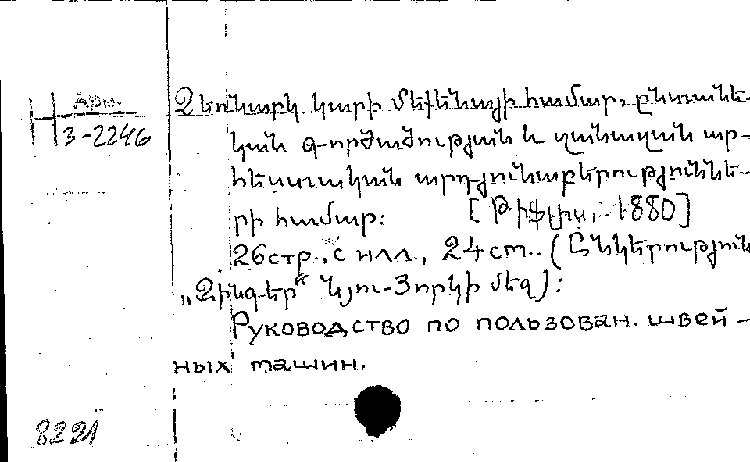 Арм.
H 3-2246
Ձեռնարկ կարի մեքենայի համար, ընտանե-
կան գործածության և զանազան ար-
հեստական արդյունաբերություննե-
րի համար: [Թիֆլիս, 1880]
26стр., с илл., 24см. (Ընկերություն
„Զինգեր“ Նյու-Յորկի մեջ):
Руководство по пользован. швей-
ных машин.
8221